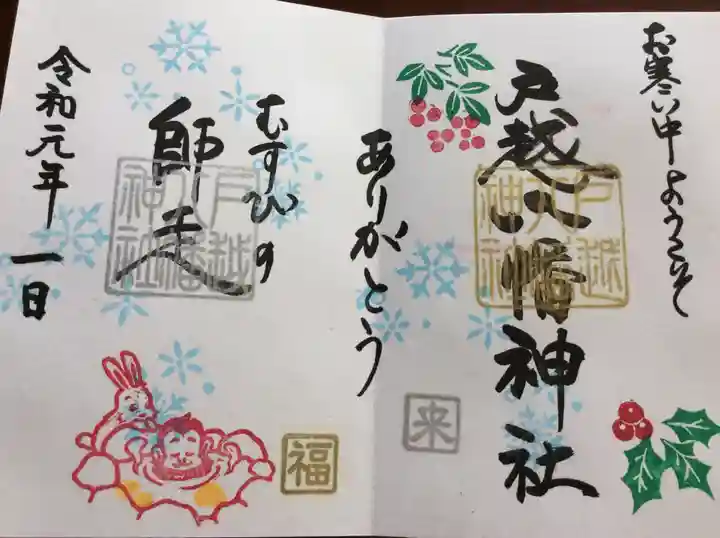 お寒い中ようこそ
戸越八幡神社
戸越
八幡
神社
来
ありがとう
むすひの
師走
戸越
八幡
神社
福
令和元年 一日